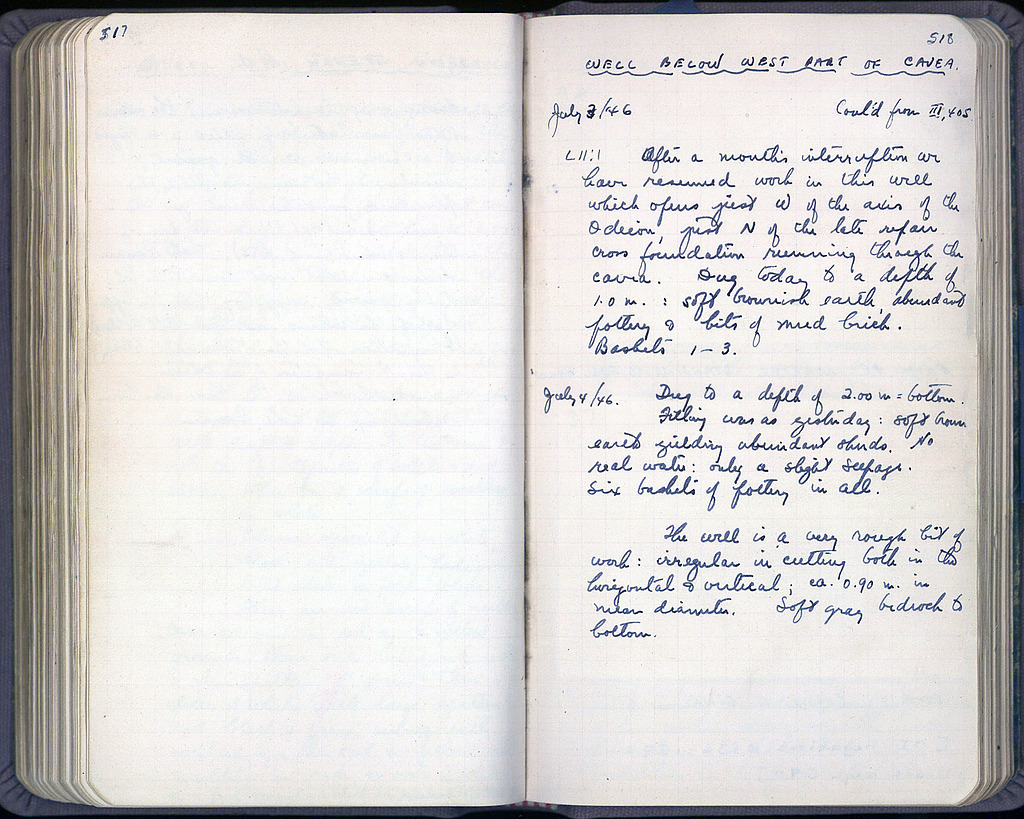 517
518
WELL BELOW WEST PART OF CAVEA.
July 3/46 Cont'd from III, 405
L11:1 After a month's interruption we
have resumed work in this well
which opens just W of the axis of the
Odeion, just N of the late repair
cross foundation running through the
cavea. Dug today to a depth of
1.0 m. : soft brownish earth, abundant
pottery & bits of mud brick.
Baskets 1 - 3.
July 4/46. Dug to a depth of 2.00 m = bottom.
Filling was as yesterday : soft brown
earth yielding abundant sherds. No
real water : only a slight seepage.
Six baskets of pottery in all.
The well is a very rough bit of
work : irregular in cutting both in the
horizontal & vertical ; ca. 0.90 m. in
mean diameter. Soft gray bedrock to
bottom.